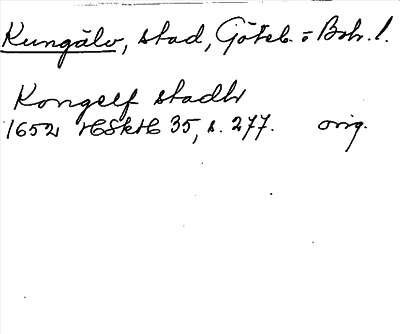 Kungälv, stad, Göteb. o Boh. l.
Kongelf stadh
1652 HSkH 35, s. 277. orig.